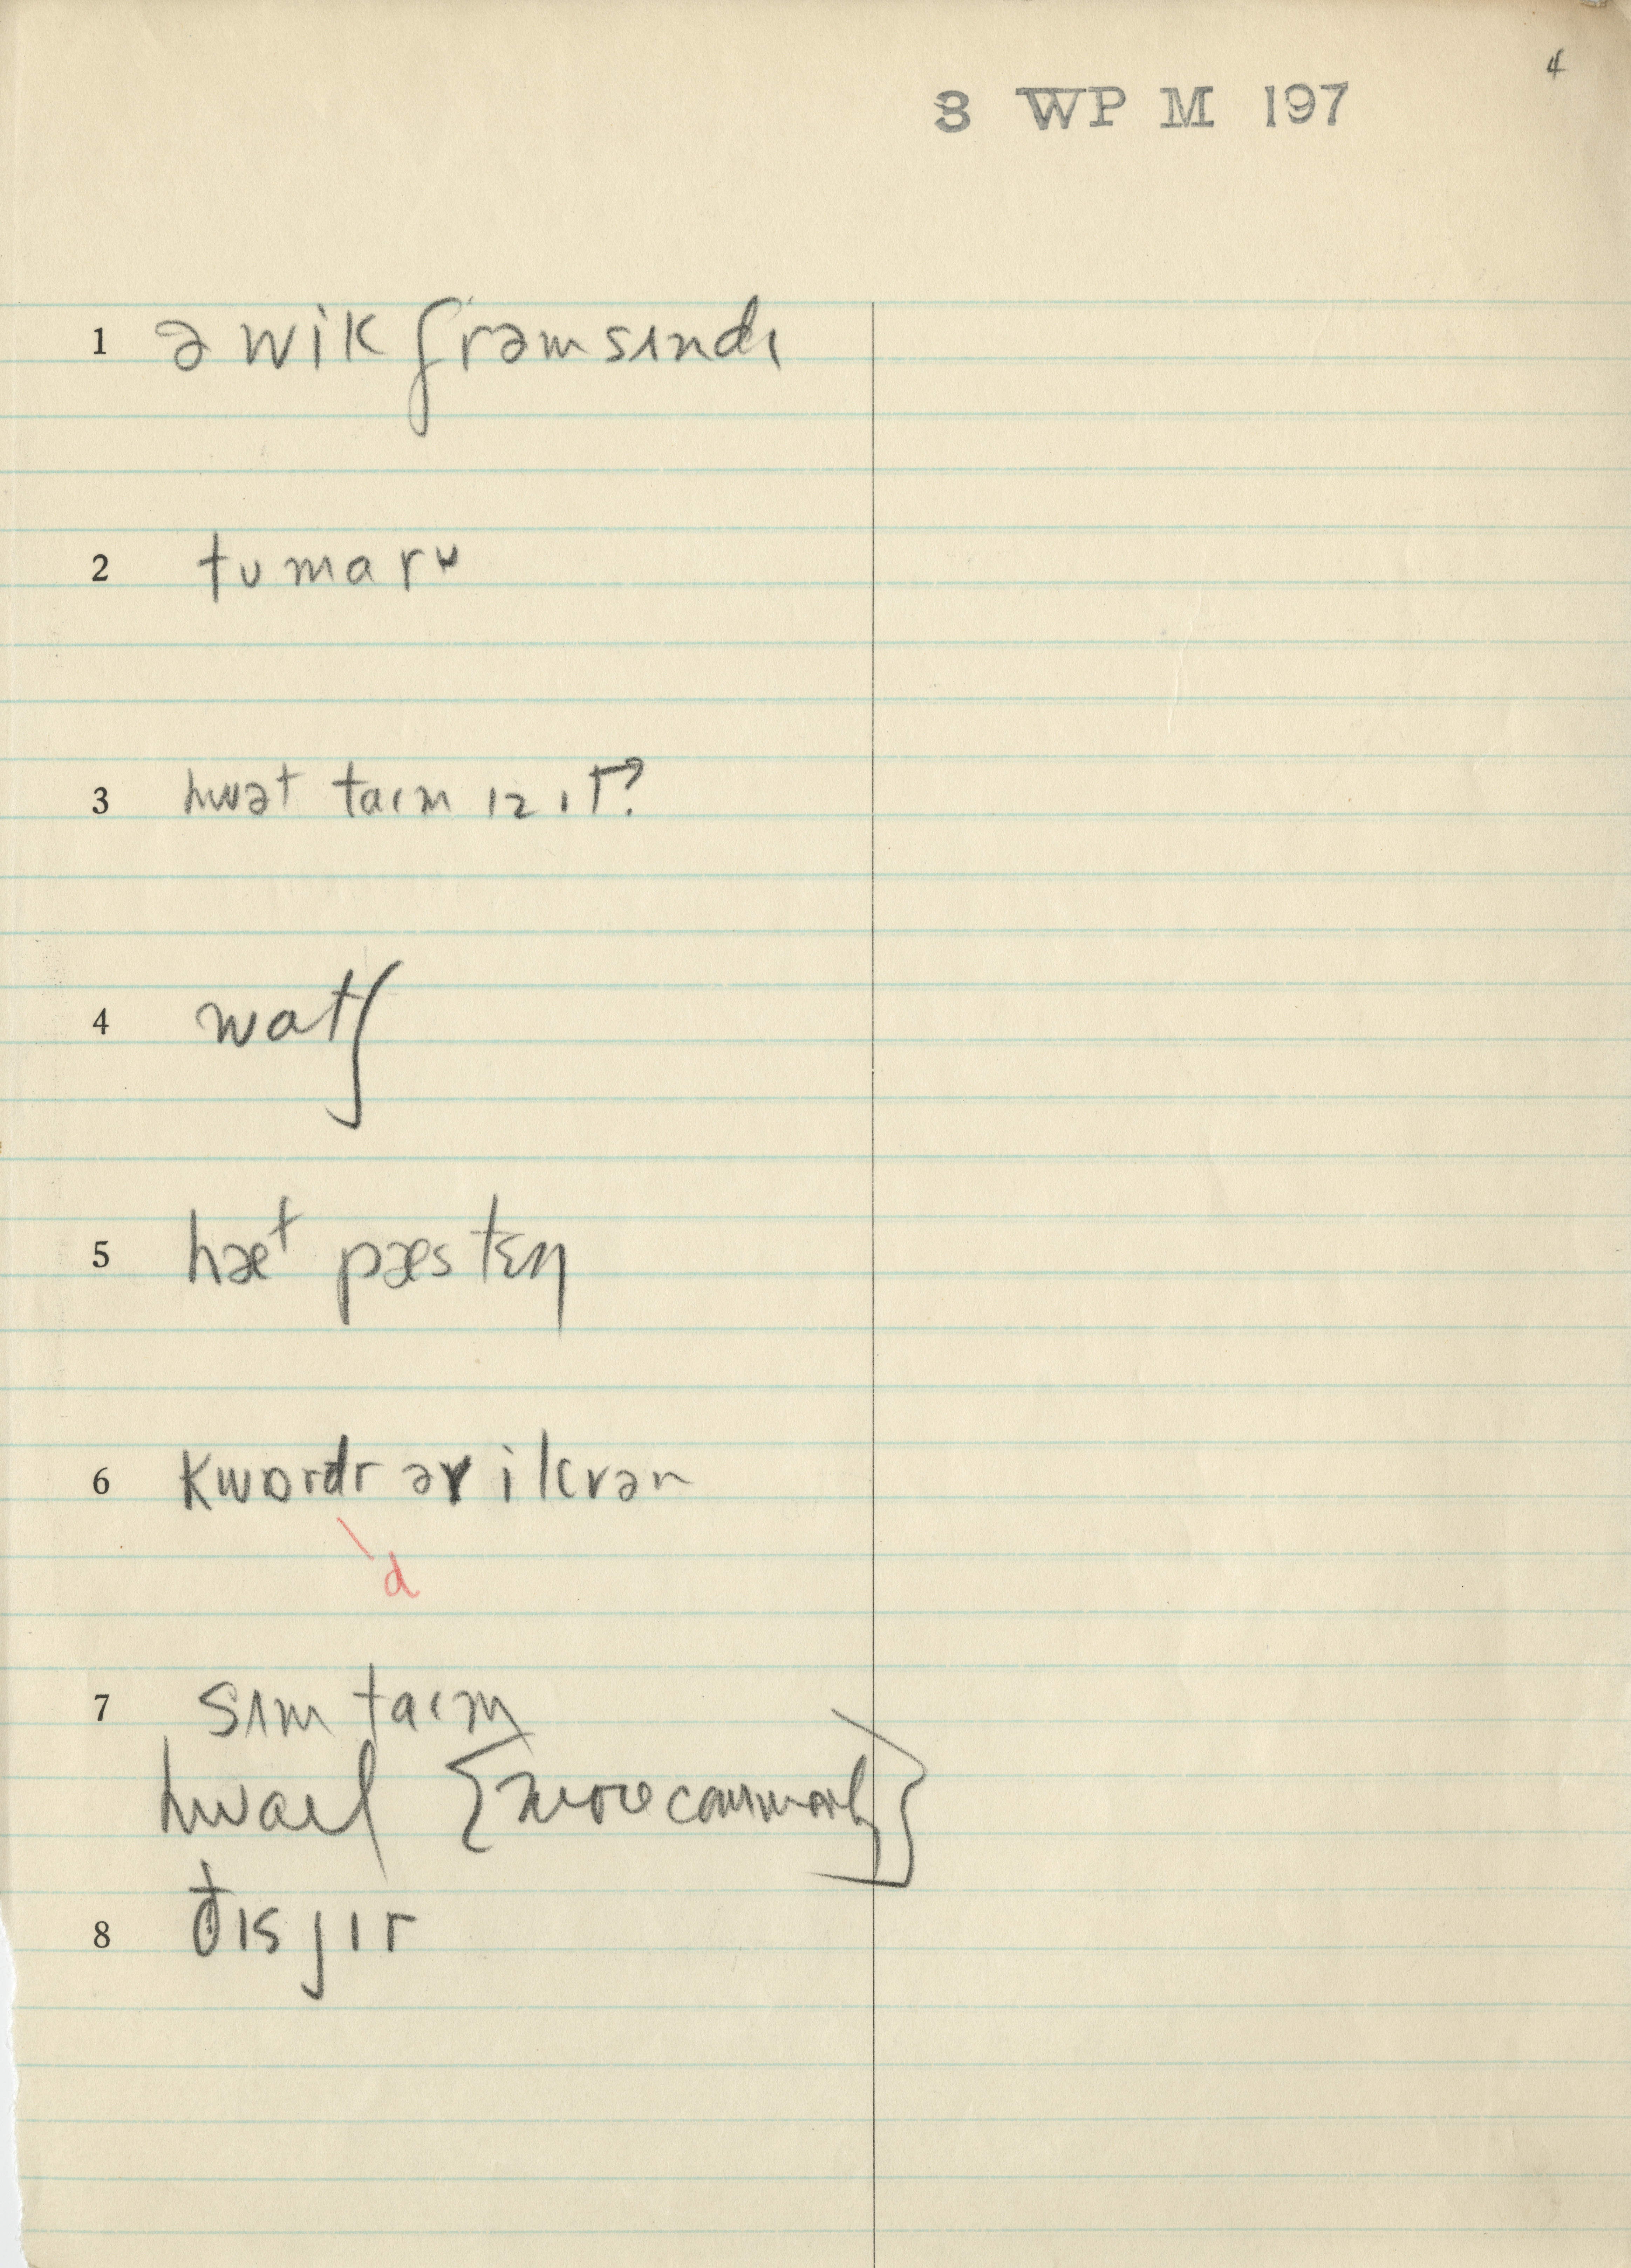 4
8 WP M 197
1 ə wik frəm sɪndɪ
2 tumarʊ
3 hwət taɪm ɪz ɪt?
4 watʃ
5 hæt pæs tɛn
6 kwɒrdr
d
7 sɪm taɪm
hwaɪl {more commonly}
8 đɪs jɪr